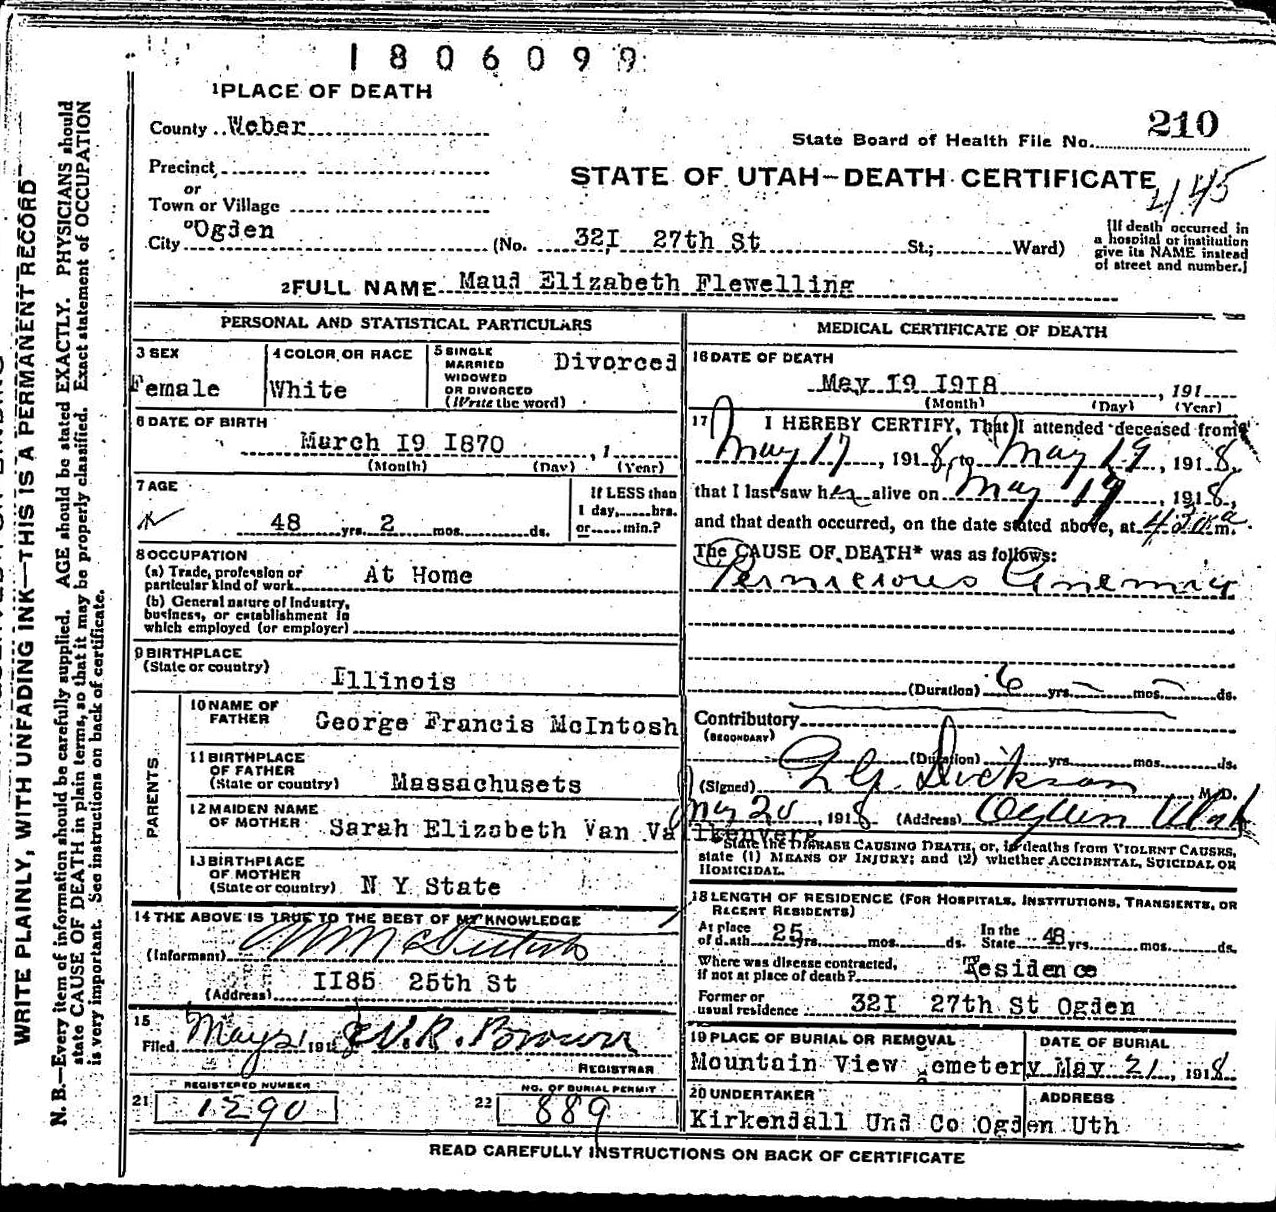 1806099
1 PLACE OF DEATH
County Weber
State Board of Health File No. 210
Precinct
or
Town or Village
STATE OF UTAH—DEATH CERTIFICATE
City Ogden (No. 32I 27th St St.; Ward)
[If death occurred in
a hospital or institution
give its NAME instead
of street and number.]
2 FULL NAME Maud Elizabeth Flewelling
PERSONAL AND STATISTICAL PARTICULARS
3 SEX
Female
4 COLOR OR RACE
White
5 SINGLE
MARRIED
WIDOWED
OR DIVORCED
(Write the word)
Divorced
6 DATE OF BIRTH
March I9 I870, 1
(Month) (Day) (Year)
7 AGE
48 yrs. 2 mos. ds.
If LESS than
1 day, hrs.
or min.?
8 OCCUPATION
(a) Trade, profession or
particular kind of work At Home
(b) General nature of Industry,
business, or establishment in
which employed (or employer)
9 BIRTHPLACE
(State or country)
Illinois
PARENTS
10 NAME OF
FATHER George Francis McIntosh
11 BIRTHPLACE
OF FATHER
(State or country) Massachusets
12 MAIDEN NAME
OF MOTHER Sarah Elizebeth Van Valkenverg
13 BIRTHPLACE
OF MOTHER
(State or country) N Y State
14 THE ABOVE IS TRUE TO THE BEST OF MY KNOWLEDGE
(Informant)
(Address) II85 25th St
15
Filed W. R. Brown
REGISTRAR
REGISTERED NUMBER
21 1290
NO. OF BURIAL PERMIT
22 889
MEDICAL CERTIFICATE OF DEATH
16 DATE OF DEATH
May I9 I918, 191
(Month) (Day) (Year)
17 I HEREBY CERTIFY, That I attended deceased from
May 17, 1918, to May 19, 1918,
that I last saw her alive on May 19, 1918,
and that death occurred, on the date stated above, at 4 30 a m.
The CAUSE OF DEATH* was as follows:
Pernicious Anemia
(Duration) 6 yrs. — mos. — ds.
Contributory
(SECONDARY)
(Duration) yrs. mos. ds.
(Signed) Dickson M.D.
May 20, 1918 (Address) Ogden Utah
*State the DISEASE CAUSING DEATH, or, in deaths from VIOLENT CAUSES,
state (1) MEANS OF INJURY; and (2) whether ACCIDENTAL, SUICIDAL OR
HOMICIDAL.
18 LENGTH OF RESIDENCE (FOR HOSPITALS, INSTITUTIONS, TRANSIENTS, OR
RECENT RESIDENTS)
At place
of death 25 yrs. mos. ds.
In the
State 48 yrs. mos. ds.
Where was disease contracted,
if not at place of death? Residence
Former or
usual residence 32I 27th St Ogden
19 PLACE OF BURIAL OR REMOVAL
Mountain View Cemetery
DATE OF BURIAL
May 21, 1918
20 UNDERTAKER
Kirkendall Und Co
ADDRESS
Ogden Uth
READ CAREFULLY INSTRUCTIONS ON BACK OF CERTIFICATE
WRITE PLAINLY, WITH UNFADING INK—THIS IS A PERMANENT RECORD
N. B.—Every item of information should be carefully supplied. AGE should be stated EXACTLY. PHYSICIANS should
state CAUSE OF DEATH in plain terms, so that it may be properly classified. Exact statement of OCCUPATION
is very important. See instructions on back of certificate.